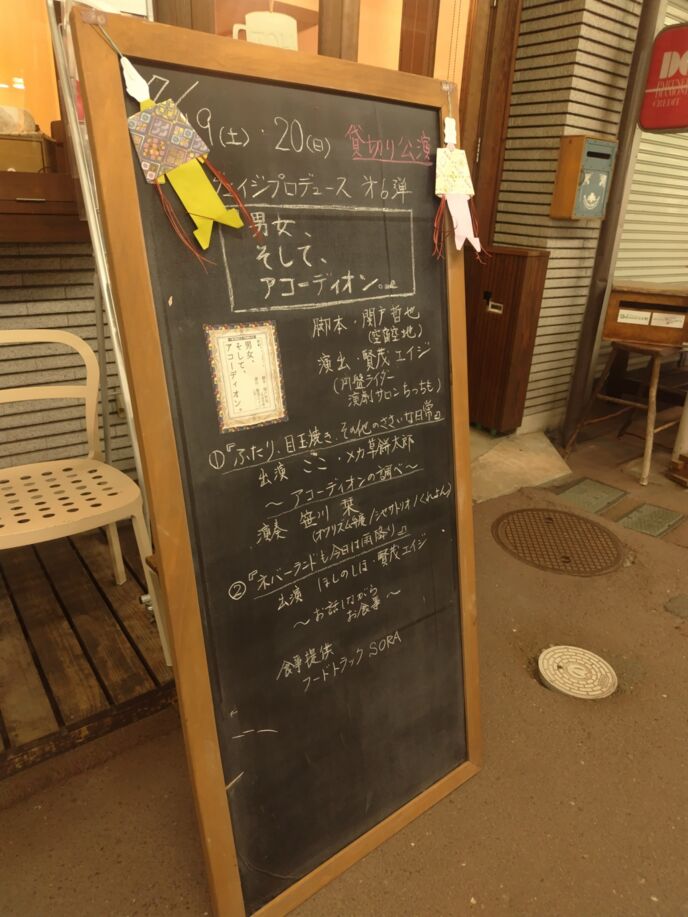 9(土)・20(日) 貸切り公演
エイジプロデュース 才6弾
男女、
そして、
アコーディオン。
脚本・関戸哲也
(空宙空地)
演出・賢茂エイジ
(円盤ライダー
演劇サロンちっちも)
男女、
そして、
アコーディオン。
①『ふたり、目玉焼き、その他のささいな日常』
出演 ここ・メカ草餅太郎
〜アコーディオンの調べ〜
演奏 笹川 栞
②『ネバーランドも今日は雨降り』
出演 ほしのしほ・賢茂エイジ
〜お話しながら
お食事〜
食事提供
フードトラック SORA
CREDIT